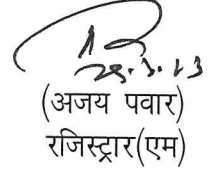 25.3.13
(अजय पवार)
रजिस्ट्रार(एम)